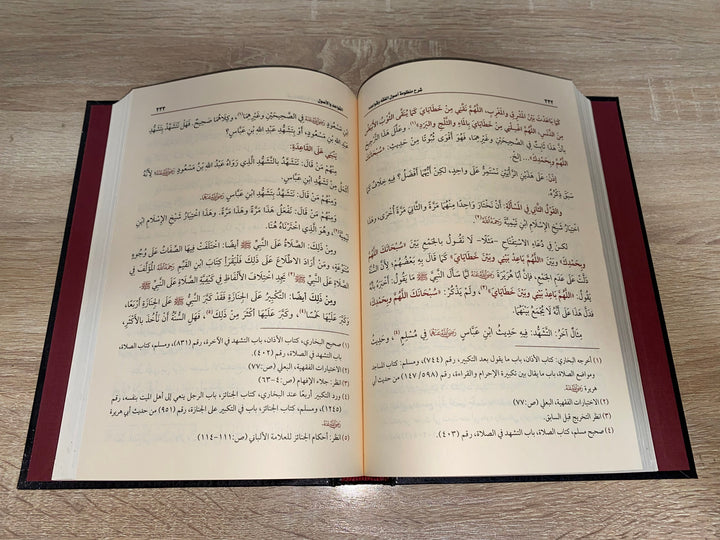 ٢٣٢
شرح منظومة أصول الفقه وقواعده
كَمَا بَاعَدْتَ بَيْنَ المَشْرِقِ وَالمَغْرِبِ، اللَّهُمَّ نَقِّنِي مِنْ خَطَايَايَ كَمَا يُنَقَّى الثَّوْبُ الأَبْيَضُ
مِنَ الدَّنَسِ، اللَّهُمَّ اغْسِلْنِي مِنْ خَطَايَايَ بِالمَاءِ وَالثَّلْجِ وَالبَرَدِ»(١)، وعلَّل هَذَا
بِأَنَّ هَذَا ثَابِتٌ فِي الصَّحِيحَيْنِ وغيرِهِمَا، فَهُوَ أَقْوَى ثُبُوتًا مِنْ حَدِيثِ: «سُبْحَانَكَ
اللَّهُمَّ وَبِحَمْدِكَ»... إلخ.
إِذَنْ: عَلَى هَذَيْنِ الرَّأْيَيْنِ نَسْتَمِرُّ عَلَى وَاحِدٍ، لكنْ أيُّهُمَا أَفْضَلُ؟ فِيهِ خِلَافٌ كَمَا
سَبَقَ ذِكْرُهُ.
والقَوْلُ الثَّانِي فِي المَسْأَلَةِ: أَنْ نَخْتَارَ وَاحِدًا مِنْهُمَا مَرَّةً والثَّانِيَ مَرَّةً أُخْرَى، وَهَذَا
اخْتِيَارُ شَيْخِ الإِسْلَامِ ابْنِ تَيْمِيَّةَ(٢) رَحِمَهُ اللهُ.
لكِنْ فِي دُعَاءِ الِاسْتِفْتَاحِ -مَثَلًا- لَا تَقُولُ بِالجَمْعِ بَيْنَ «سُبْحَانَكَ اللَّهُمَّ
وَبِحَمْدِكَ» وبين «اللَّهُمَّ بَاعِدْ بَيْنِي وَبَيْنَ خَطَايَايَ» كَمَا قَالَ بِهِ بَعْضُهُمْ؛ لأَنَّ السُّنَّةَ
دَلَّتْ عَلَى عَدَمِ الجَمْعِ، فَإِنَّ أَبَا هُرَيْرَةَ رَضِيَ اللهُ عَنْهُ لَمَّا سَأَلَ النَّبِيَّ ﷺ مَا يَقُولُ؛ أَخْبَرَهُ بِأَنَّهُ
يَقُولُ: «اللَّهُمَّ بَاعِدْ بَيْنِي وَبَيْنَ خَطَايَايَ»(٣)، وَلَمْ يَذْكُرْ: «سُبْحَانَكَ اللَّهُمَّ وَبِحَمْدِكَ»،
فَدَلَّ هَذَا عَلَى أَنَّهُ لَا يُجْمَعُ بَيْنَهُمَا.
مِثَالٌ آخَرُ: التَّشَهُّدُ، فِيهِ حَدِيثُ ابْنِ عَبَّاسٍ رَضِيَ اللهُ عَنْهُمَا فِي مُسْلِمٍ(٤)، وحَدِيثُ
(١) أخرجه البخاري: كتاب الأذان، باب ما يقول بعد التكبير، رقم (٧٤٤)، ومسلم: كتاب المساجد
ومواضع الصلاة، باب ما يقال بين تكبيرة الإحرام والقراءة، رقم (٥٩٨/ ١٤٧) من حديث أبي
هريرة رَضِيَ اللهُ عَنْهُ.
(٢) الاختيارات الفقهية، البعلي (ص:٧٧)
(٣) انظر التخريج قبل السابق.
(٤) صحيح مسلم، كتاب الصلاة، باب التشهد في الصلاة، رقم (٤٠٣).
القواعد والأصول
٢٣٣
ابْنِ مَسْعُودٍ رَضِيَ اللهُ عَنْهُ فِي الصَّحِيحَيْنِ وَغَيْرِهِمَا(١)، وَكِلَاهُمَا صَحِيحٌ، فَهَلْ نَتَشَهَّدُ بِتَشَهُّدِ
عَبْدِ اللهِ بْنِ مَسْعُودٍ، أَوْ بِتَشَهُّدِ عَبْدِ اللهِ بْنِ عَبَّاسٍ؟
يَنْبَنِي عَلَى القَاعِدَةِ:
مِنْهُمْ مَنْ قَالَ: نَتَشَهَّدُ بِالتَّشَهُّدِ الَّذِي رَوَاهُ عَبْدُ اللهِ بْنُ مَسْعُودٍ رَضِيَ اللهُ عَنْهُ لِأَنَّهُ
أَكْمَلُ مِنْ تَشَهُّدِ ابْنِ عَبَّاسٍ.
وَمِنْهُمْ مَنْ قَالَ: نَتَشَهَّدُ بِتَشَهُّدِ ابْنِ عَبَّاسٍ رَضِيَ اللهُ عَنْهُمَا.
وَمِنْهُمْ مَنْ قَالَ: نَفْعَلُ هَذَا مَرَّةً وَهَذَا مَرَّةً. وَهَذَا اخْتِيَارُ شَيْخِ الإِسْلَامِ ابْنِ
تَيْمِيَّةَ(٢)، وَهَذَا الَّذِي اخْتَرْنَاهُ هُنَا.
وَمِنْ ذَلِكَ: الصَّلَاةُ عَلَى النَّبِيِّ ﷺ أيضًا، اخْتَلَفَتْ فِيهَا الصِّفَاتُ عَلَى وُجُوهٍ
مُتَنَوِّعَةٍ، فَمَنْ أَرَادَ الِاطِّلَاعَ عَلَى ذَلِكَ فَلْيَقْرَأْ كِتَابَ ابْنِ القَيِّمِ رَحِمَهُ اللهُ المُؤَلَّفَ فِي
الصَّلَاةِ عَلَى النَّبِيِّ ﷺ(٣) يَجِدِ اخْتِلَافَ الأَلْفَاظِ فِي كَيْفِيَّةِ الصَّلَاةِ عَلَى النَّبِيِّ ﷺ.
ومن ذلك أيضًا: التَّكْبِيرُ عَلَى الجِنَازَةِ فَقَدْ كَبَّرَ النَّبِيُّ ﷺ عَلَى الجَنَازَةِ أَرْبَعًا،
وَكَبَّرَ عَلَيْهَا خَمْسًا(٤)، وَكَبَّرَ عَلَيْهَا أَكْثَرَ مِنْ ذَلِكَ(٥)، فَهَلِ السُّنَّةُ أَنْ نَأْخُذَ بِالأَكْثَرِ،
(١) أخرجه البخاري: كتاب الأذان، باب التشهد في الآخرة، رقم (٨٣١)، ومسلم، كتاب الصلاة،
باب التشهد في الصلاة، رقم (٤٠٢).
(٢) الاختيارات الفقهية، البعلي (ص:٧٧)
(٣) انظر: جلاء الإفهام (ص:٤-٦٣)
(٤) ورد التكبير أربعًا عند البخاري، كتاب الجنائز، باب الرجل ينعي إلى أهل الميت بنفسه، رقم
(١٢٤٥)، ومسلم، كتاب الجنائز، باب في التكبير على الجنازة، رقم (٩٥١) من حديث أبي هريرة
رَضِيَ اللهُ عَنْهُ.
(٥) انظر: أحكام الجنائز للعلامة الألباني (ص:١١١-١١٤)